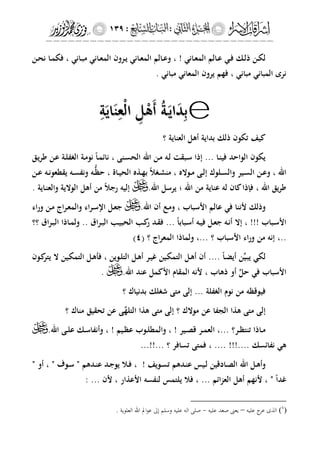 إشراقات الإسراء : الجزء الثاني : الباب الثاني : ١٣٩ :
لكن ذلك في عالم المعاني ! ، وعالم المعاني يرون المعاني مباني ، فكما نحن
نرى المباني مباني ، فهم يرون المعاني مباني .
بِدَايَةُ أَهْلِ الْعِنَايَةِ
كيف تكون ذلك بداية أهل العناية ؟
يكون الواحد فينا ... إذا سبقت له من الله الحسنى ، نائماً نومة الغفلة عن طريق
الله ، وعن السير والسلوك إلى مولاه ، منشغلاً بهذه الحياة ، حظُّه ونفسه يقطعونه عن
طريق الله ، فإذا كان له عناية من الله ، يرسل الله إليه رجلاً من أهل الولاية والعناية .
وذلك لأننا في عالم الأسباب ، ومع أن الله جعل الإسراء والمعراج من وراء
الأسباب !!! ، إلا أنه جعل فيه أسباباً ... فقد ركب الحبيب البراق .. ولماذا البراق ؟؟
.. إنه من وراء الأسباب ؟ ...، ولماذا المعراج ؟ (٤)
لكي يبيِّن أيضاً .... أن أهل التمكين غير أهل التلوين ، فأهل التمكين لا يتركون
الأسباب في حلٍّ أو ذهاب ، لأنه المقام الأكمل عند الله .
فيوقظه من نوم الغفلة ... إلى متى شغلك بدنياك ؟
إلى متى هذا الجفا عن مولاك ؟ إلى متى هذا التلهِّى عن تحقيق مناك ؟
ماذا تنتظر؟ ...، العمر قصير ! ، والمطلوب عظيم ! ، وأنفاسك على الله
هي نفائسك ....!!!! .... ، فمتى تسافر ؟ ...!!...
وأهل الله الصادقين ليس عندهم تسويف ! ، فلا يوجد عندهم " سوف " ، أو "
غداً " ، لأنهم أهل العزائم ... ، فلا يلتمس لنفسه الأعذار ، لأن ... :
(٤) الذى عرج عليه – يعنى صعد عليه - صلى الله عليه وسلم إلى عوالم الله العلوية .